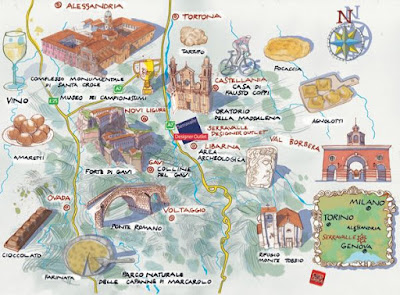 ALESSANDRIA
TORTONA
TARTUFO
FOCACCIA
COMPLESSO MONUMENTALE
DI SANTA CROCE
CASTELLANIA
CASA DI
FAUSTO COPPI
VINO
MUSEO DEI CAMPIONISSIMI
AGNOLOTTI
NOVI LIGURE
ORATORIO
DELLA MADDALENA
SERRAVALLE
DESIGNER OUTLET
Designer Outlet
VAL BORBERA
LIBARNA
AREA
ARCHEOLOGICA
AMARETTI
FORTE DI GAVI
GAVI
COLLINE
DEL GAVI
OVADA
VOLTAGGIO
PONTE ROMANO
CIOCCOLATO
FARINATA
PARCO NATURALE
DELLE CAPANNE DI MARCAROLO
RIFUGIO
MONTE TOBBIO
MILANO
TORINO
ALESSANDRIA
SERRAVALLE
GENOVA